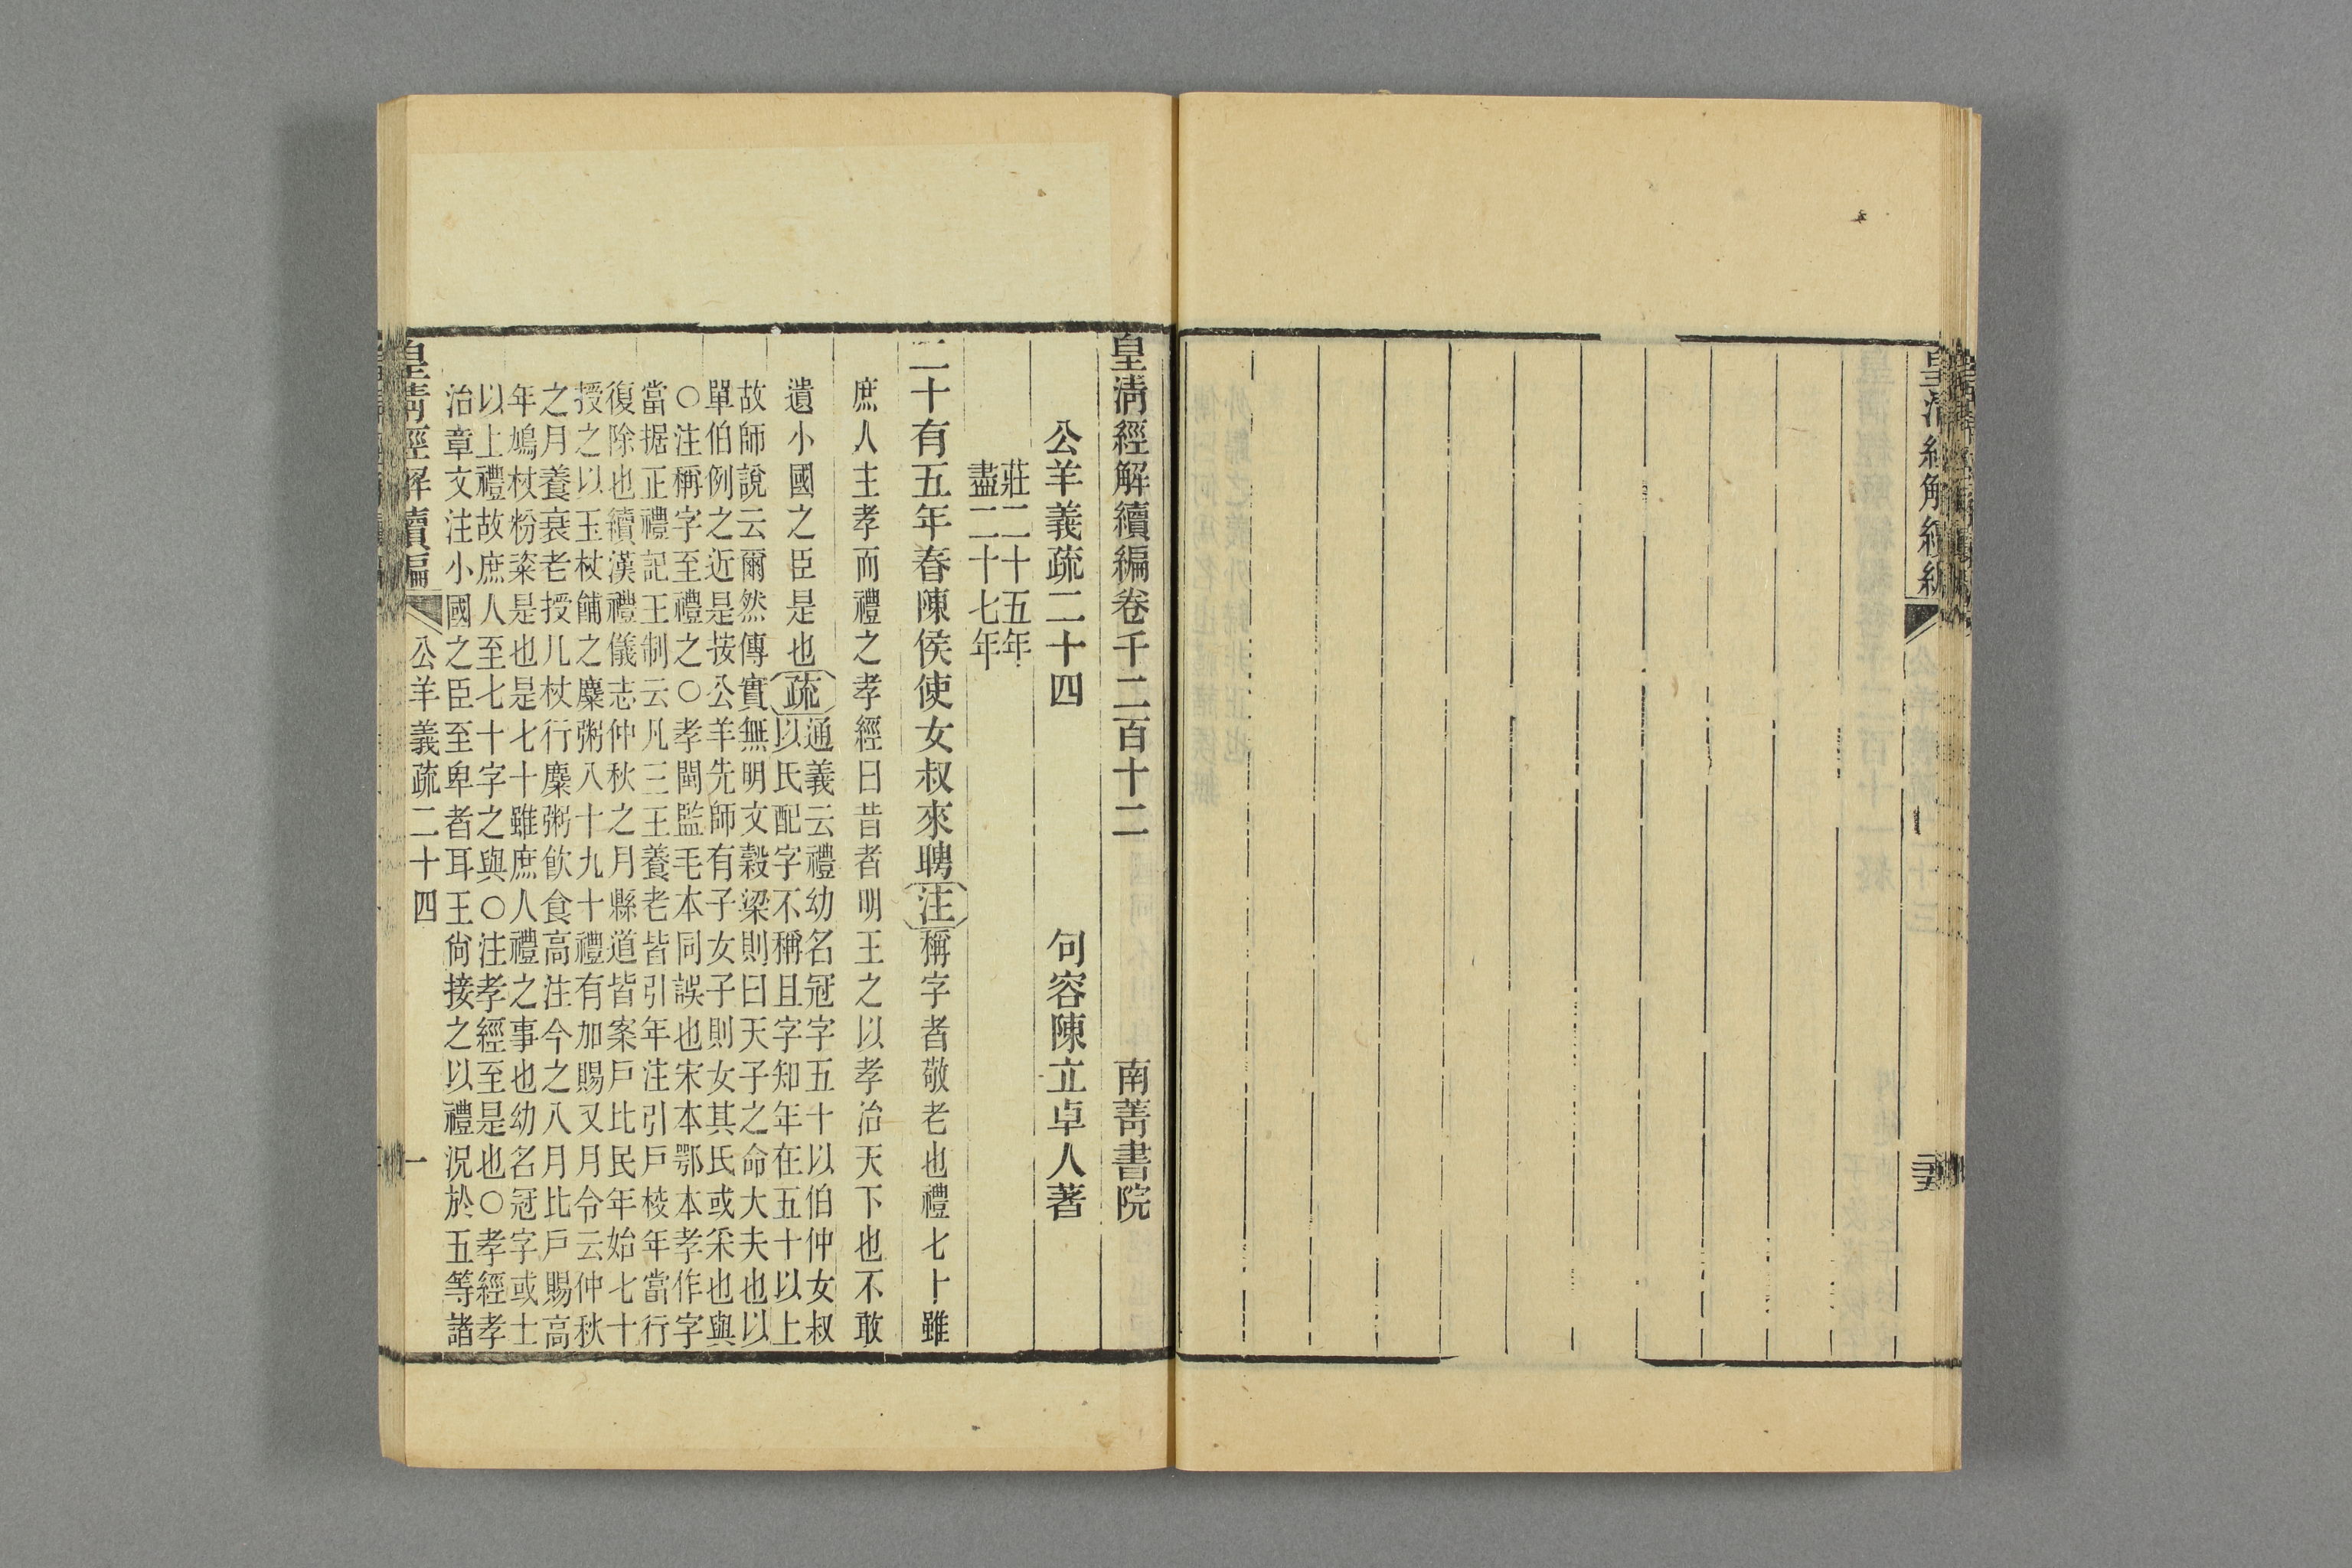 皇清經解續編
皇清經解續編卷千二百十二 南菁書院
公羊義疏二十四 句容陳立卓人著
莊二十五年
盡二十七年
二十有五年春陳侯使女叔來聘注稱字者敬老也禮七十雖
庶人主孝而禮之孝經曰昔者明王之以孝治天下也不敢
遺小國之臣是也疏
通義云禮幼名冠字五十以伯仲女叔
以氏配字不稱且字知年在五十以上
故師說云爾然傳實無明文穀梁則曰天子之命大夫也以
單伯例之近是按公羊先師有子女子則女其氏或采也與
○注稱字至禮之○孝閩監毛本同誤也宋本鄂本孝作字
當据正禮記王制云凡三王養老皆引年注引戶校年當行
復除也續漢禮儀志仲秋之月縣道皆案戶比民年始七十
授之以玉杖餔之麋粥八十九十禮有加賜又月令云仲秋
之月養衰老授几杖行麋粥飲食高注今之八月比戶賜高
年鳩杖粉粢是也是七十雖庶人禮之事也幼名冠字或士
以上禮故庶人至七十字之與○注孝經至是也○孝經孝
治章文注小國之臣至卑者耳王尙接之以禮況於五等諸
皇清經解續編 公羊義疏二十四 一